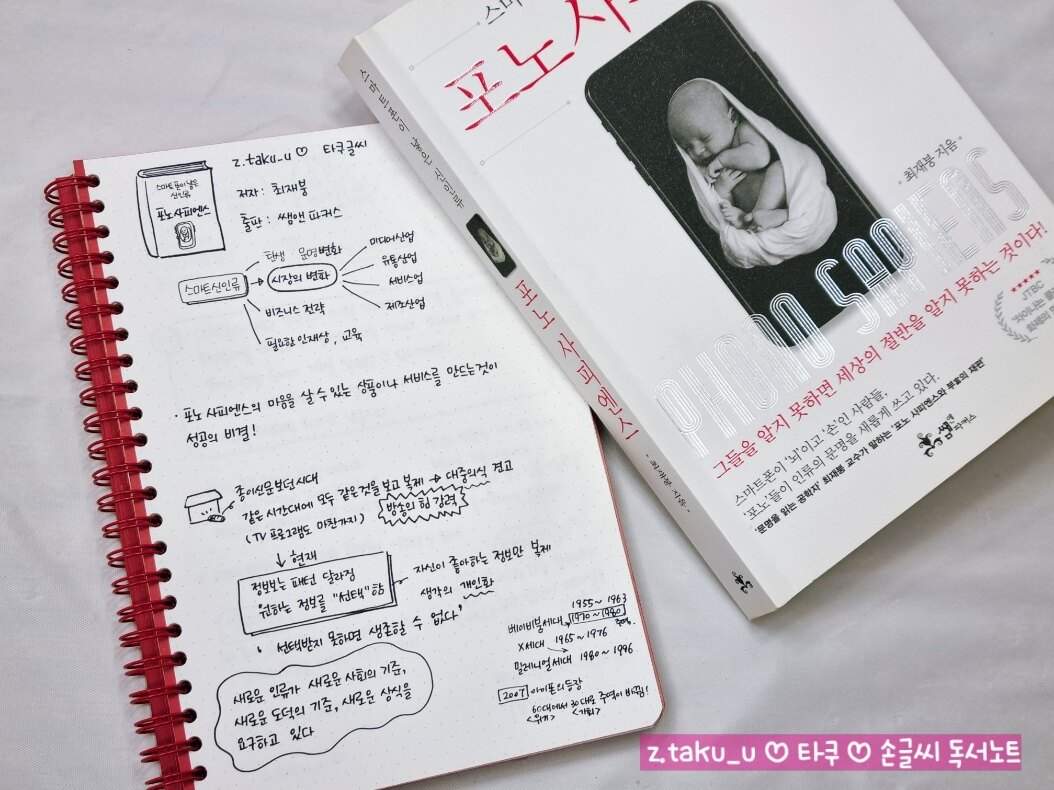 z.taku_u ♡ 타쿠글씨
스마트폰이 낳은
신인류
포노 사피엔스
저자 : 최재붕
출판 : 쌤앤 파커스
스마트신인류
탄생 운명변화
시장의 변화
미디어산업
유통산업
서비스업
제조산업
비즈니스 전략
필요한 인재상, 교육
· 포노 사피엔스의 마음을 살 수 있는 상품이나 서비스를 만드는것이
성공의 비결!
종이신문보던시대
같은 시간대에 모두 같은것을 보고 복제 → 대중의식 견고
(TV 프로그램도 마찬가지)
방송의 힘 강력
↓ 현재
정보보는 패턴 달라짐
원하는 정보를 "선택"함
자신이 좋아하는 정보만 복제
생각의 개인화
‘ 선택받지 못하면 생존할 수 없다 ’
새로운 인류가 새로운 사회의 기준,
새로운 도덕의 기준, 새로운 상식을
요구하고 있다
1955~1963
베이비붐세대 → 1970~1990 주역
X세대 1965~1976
밀레니얼세대 1980~1996
2007 아이폰의 등장
60대에서 30대로 주역이 바뀜!
<위기> <기회>
스마트폰이 낳은 신인류
포노 사피엔스
· 최재붕 지음 ·
스마
포노 사
· 최재붕 지음 ·
PHONO SAPIENS
그들을 알지 못하면 세상의 절반을 알지 못하는 것이다!
스마트폰이 '뇌'이고 '손'인 사람들,
'포노'들이 인류의 문명을 새롭게 쓰고 있다.
'문명을 읽는 공학자' 최재붕 교수가 말하는 '포노 사피엔스와 부富의 재편'
★★★★★
JTBC
화제의
쌤앤
파커스
z.taku_u ♡ 타쿠 ♡ 손글씨 독서노트